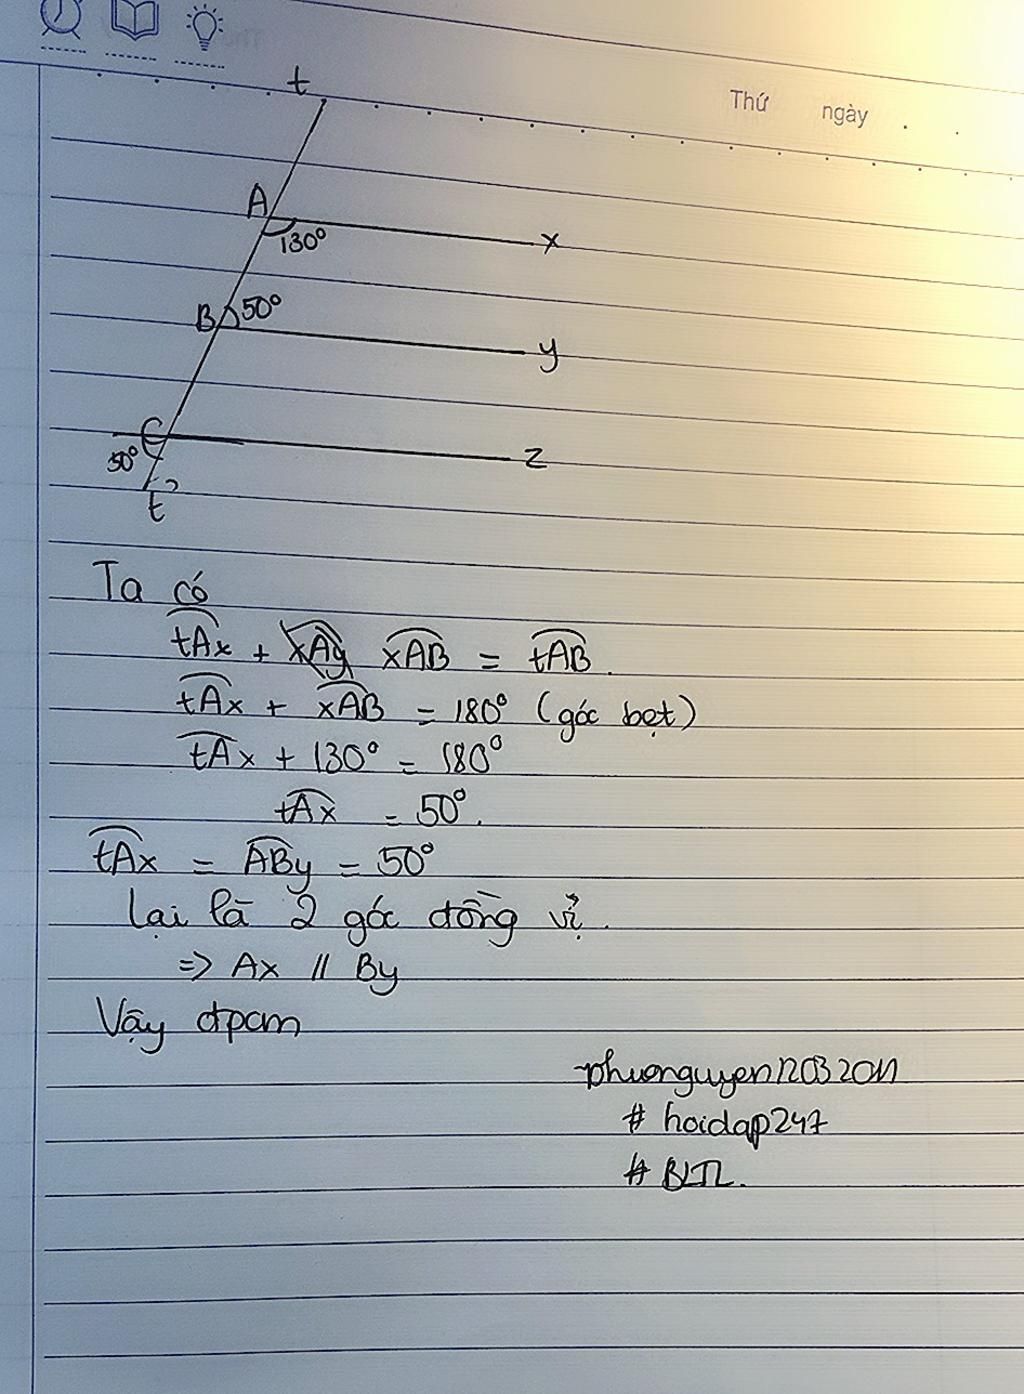 Thứ ngày
t
A
130°
x
B
50°
y
C
50°
z
t'
Ta có
tAx + xAy xAB = tAB.
tAx + xAB = 180° (góc bẹt)
tAx + 130° = 180°
tAx = 50°.
tAx = ABy = 50°
Lại là 2 góc đồng vị.
=> Ax // By
Vậy đpcm
phuonguyen12032011
# hoidap247
# BLTL.